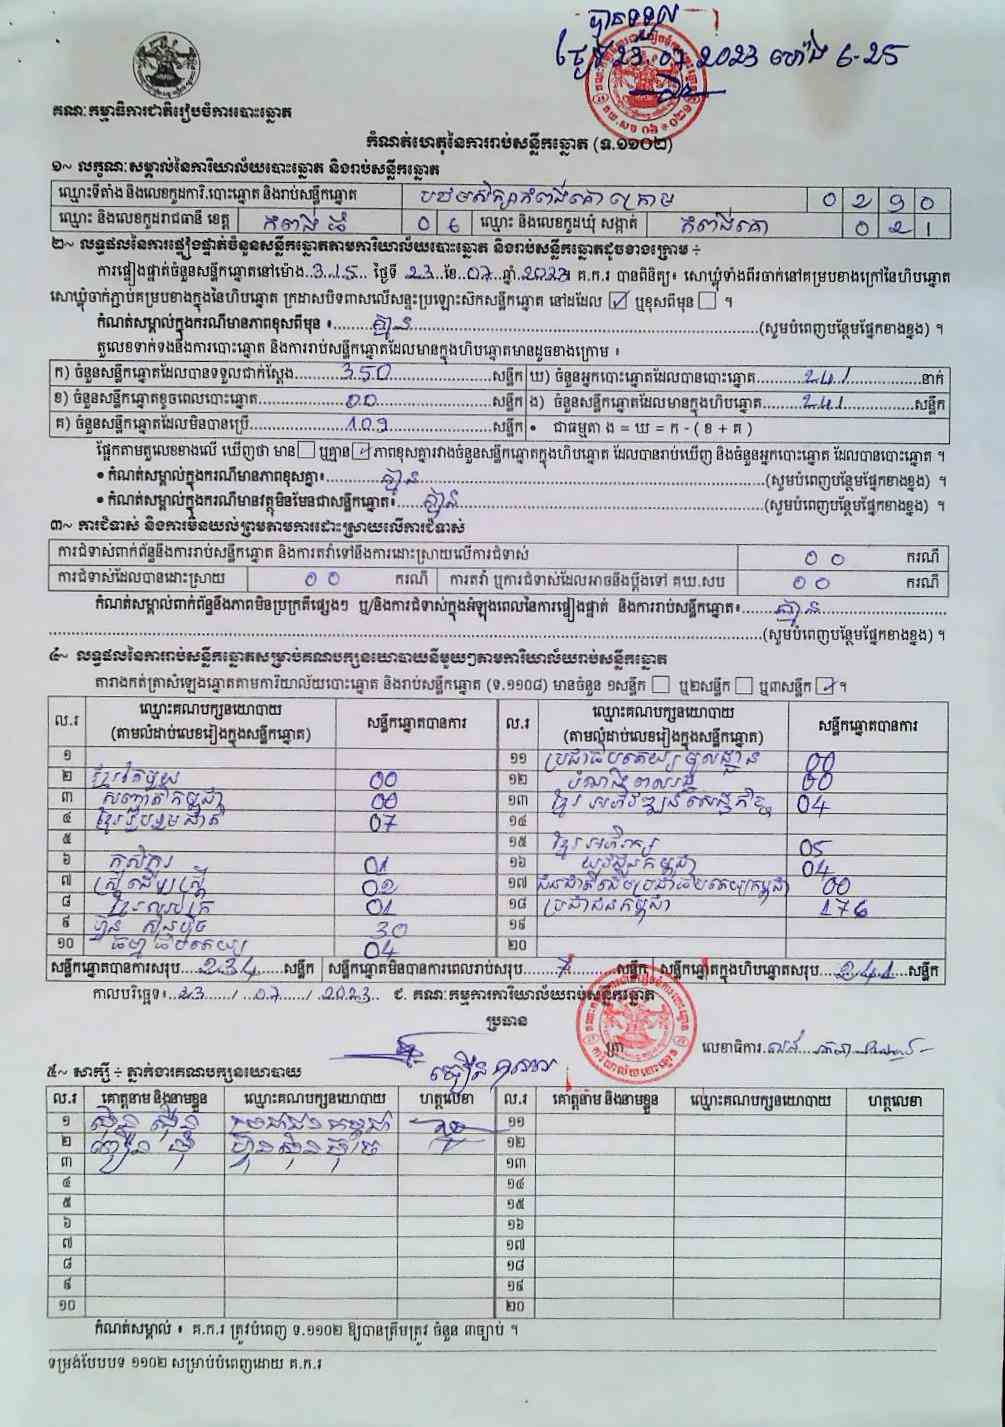 បានទទួល
ថ្ងៃទី 23.07.2023 ម៉ោង 6-25
គណៈកម្មាធិការជាតិរៀបចំការបោះឆ្នោត
កំណត់ហេតុនៃការរាប់សន្លឹកឆ្នោត (ទ.១១០២)
១~ លក្ខណៈសម្គាល់នៃការិយាល័យបោះឆ្នោត និងរាប់សន្លឹកឆ្នោត
ឈ្មោះទីតាំង និងលេខកូដការិ.បោះឆ្នោត និងរាប់សន្លឹកឆ្នោត បឋមសិក្សាកំពង់គោក្រោម 0 2 9 0
ឈ្មោះ និងលេខកូដរាជធានី ខេត្ត កំពង់ធំ 0 6 ឈ្មោះ និងលេខកូដឃុំ សង្កាត់ កំពង់គោ 0 2 1
២~ លទ្ធផលនៃការផ្ទៀងផ្ទាត់ចំនួនសន្លឹកឆ្នោតតាមការិយាល័យបោះឆ្នោត និងរាប់សន្លឹកឆ្នោតដូចខាងក្រោម ÷
ការផ្ទៀងផ្ទាត់ចំនួនសន្លឹកឆ្នោតនៅម៉ោង 3:15 ថ្ងៃទី 23 ខែ 07 ឆ្នាំ 2023 គ.ក.រ បានពិនិត្យ៖ សោឃ្លុំទាំងពីរចាក់នៅគម្របខាងក្រៅនៃហិបឆ្នោត
សោឃ្លុំចាក់ភ្ជាប់គម្របខាងក្នុងនៃហិបឆ្នោត ក្រដាសបិទពាសលើសន្ទះប្រឡោះស៊កសន្លឹកឆ្នោត នៅដដែល ☑ ឬខុសពីមុន ☐ ។
កំណត់សម្គាល់ក្នុងករណីមានភាពខុសពីមុន ៖ គ្មាន (សូមបំពេញបន្ថែមផ្នែកខាងខ្នង) ។
តួលេខទាក់ទងនឹងការបោះឆ្នោត និងការរាប់សន្លឹកឆ្នោតដែលមានក្នុងហិបឆ្នោតមានដូចខាងក្រោម ៖
ក) ចំនួនសន្លឹកឆ្នោតដែលបានទទួលជាក់ស្តែង 350 សន្លឹក ឃ) ចំនួនអ្នកបោះឆ្នោតដែលបានបោះឆ្នោត 241 នាក់
ខ) ចំនួនសន្លឹកឆ្នោតខូចពេលបោះឆ្នោត 00 សន្លឹក ង) ចំនួនសន្លឹកឆ្នោតដែលមានក្នុងហិបឆ្នោត 241 សន្លឹក
គ) ចំនួនសន្លឹកឆ្នោតដែលមិនបានប្រើ 109 សន្លឹក • ជាធម្មតា ង = ឃ = ក - ( ខ + គ )
ផ្អែកតាមតួលេខខាងលើ ឃើញថា មាន ☐ ឬគ្មាន ☑ ភាពខុសគ្នារវាងចំនួនសន្លឹកឆ្នោតក្នុងហិបឆ្នោត ដែលបានរាប់ឃើញ និងចំនួនអ្នកបោះឆ្នោត ដែលបានបោះឆ្នោត ។
• កំណត់សម្គាល់ក្នុងករណីមានភាពខុសគ្នា៖ គ្មាន (សូមបំពេញបន្ថែមផ្នែកខាងខ្នង) ។
• កំណត់សម្គាល់ក្នុងករណីមានវត្ថុមិនមែនជាសន្លឹកឆ្នោត៖ គ្មាន (សូមបំពេញបន្ថែមផ្នែកខាងខ្នង) ។
៣~ ការជំទាស់ និងការមិនយល់ព្រមតាមការដោះស្រាយលើការជំទាស់
ការជំទាស់ពាក់ព័ន្ធនឹងការរាប់សន្លឹកឆ្នោត និងការតវ៉ាទៅនឹងការដោះស្រាយលើការជំទាស់ 0 0 ករណី
ការជំទាស់ដែលបានដោះស្រាយ 0 0 ករណី ការតវ៉ា ឬការជំទាស់ដែលអាចនឹងប្តឹងទៅ គឃ.សប 0 0 ករណី
កំណត់សម្គាល់ពាក់ព័ន្ធនឹងភាពមិនប្រក្រតីផ្សេងៗ ឬ/និងការជំទាស់ក្នុងអំឡុងពេលនៃការផ្ទៀងផ្ទាត់ និងការរាប់សន្លឹកឆ្នោត៖ គ្មាន
(សូមបំពេញបន្ថែមផ្នែកខាងខ្នង) ។
៤~ លទ្ធផលនៃការរាប់សន្លឹកឆ្នោតសម្រាប់គណបក្សនយោបាយនីមួយៗតាមការិយាល័យរាប់សន្លឹកឆ្នោត
តារាងកត់ត្រាសំឡេងឆ្នោតតាមការិយាល័យបោះឆ្នោត និងរាប់សន្លឹកឆ្នោត (ទ.១១០៨) មានចំនួន ១សន្លឹក ☐ ឬ២សន្លឹក ☐ ឬ៣សន្លឹក ☑ ។
ល.រ ឈ្មោះគណបក្សនយោបាយ (តាមលំដាប់លេខរៀងក្នុងសន្លឹកឆ្នោត) សន្លឹកឆ្នោតបានការ ល.រ ឈ្មោះគណបក្សនយោបាយ (តាមលំដាប់លេខរៀងក្នុងសន្លឹកឆ្នោត) សន្លឹកឆ្នោតបានការ
១ ១១ ប្រជាធិបតេយ្យមូលដ្ឋាន 00
២ ខ្មែរតែមួយ 00 ១២ បំណាំងពលរដ្ឋ 00
៣ សញ្ជាតិកម្ពុជា 00 ១៣ ខ្មែរអភិវឌ្ឍន៍សេដ្ឋកិច្ច 04
៤ ខ្មែររួបរួមជាតិ 07 ១៤
៥ ១៥ ខ្មែរអភិរក្ស 05
៦ កសិករ 01 ១៦ យុវជនកម្ពុជា 04
៧ ស្ត្រីដើម្បីស្ត្រី 02 ១៧ ជនជាតិដើមប្រជាធិបតេយ្យកម្ពុជា 00
៨ 01 ១៨ ប្រជាជនកម្ពុជា 176
៩ ហ្វ៊ុនស៊ិនប៉ិច 30 ១៩
១០ ធម្មាធិបតេយ្យ 04 ២០
សន្លឹកឆ្នោតបានការសរុប 234 សន្លឹក សន្លឹកឆ្នោតមិនបានការពេលរាប់សរុប 7 សន្លឹក សន្លឹកឆ្នោតក្នុងហិបឆ្នោតសរុប 241 សន្លឹក
កាលបរិច្ឆេទ៖ 23 / 07 / 2023 ជ. គណៈកម្មការការិយាល័យរាប់សន្លឹកឆ្នោត
ប្រធាន
ត្រា លេខាធិការ
៥~ សាក្សី ÷ ភ្នាក់ងារគណបក្សនយោបាយ
ល.រ គោត្តនាម និងនាមខ្លួន ឈ្មោះគណបក្សនយោបាយ ហត្ថលេខា ល.រ គោត្តនាម និងនាមខ្លួន ឈ្មោះគណបក្សនយោបាយ ហត្ថលេខា
១ ប្រជាជនកម្ពុជា ១១
២ ហ្វ៊ុនស៊ិនប៉ិច ១២
៣ ១៣
៤ ១៤
៥ ១៥
៦ ១៦
៧ ១៧
៨ ១៨
៩ ១៩
១០ ២០
កំណត់សម្គាល់ ៖ គ.ក.រ ត្រូវបំពេញ ទ.១១០២ ឱ្យបានត្រឹមត្រូវ ចំនួន ៣ច្បាប់ ។
ទម្រង់បែបបទ ១១០២ សម្រាប់បំពេញដោយ គ.ក.រ